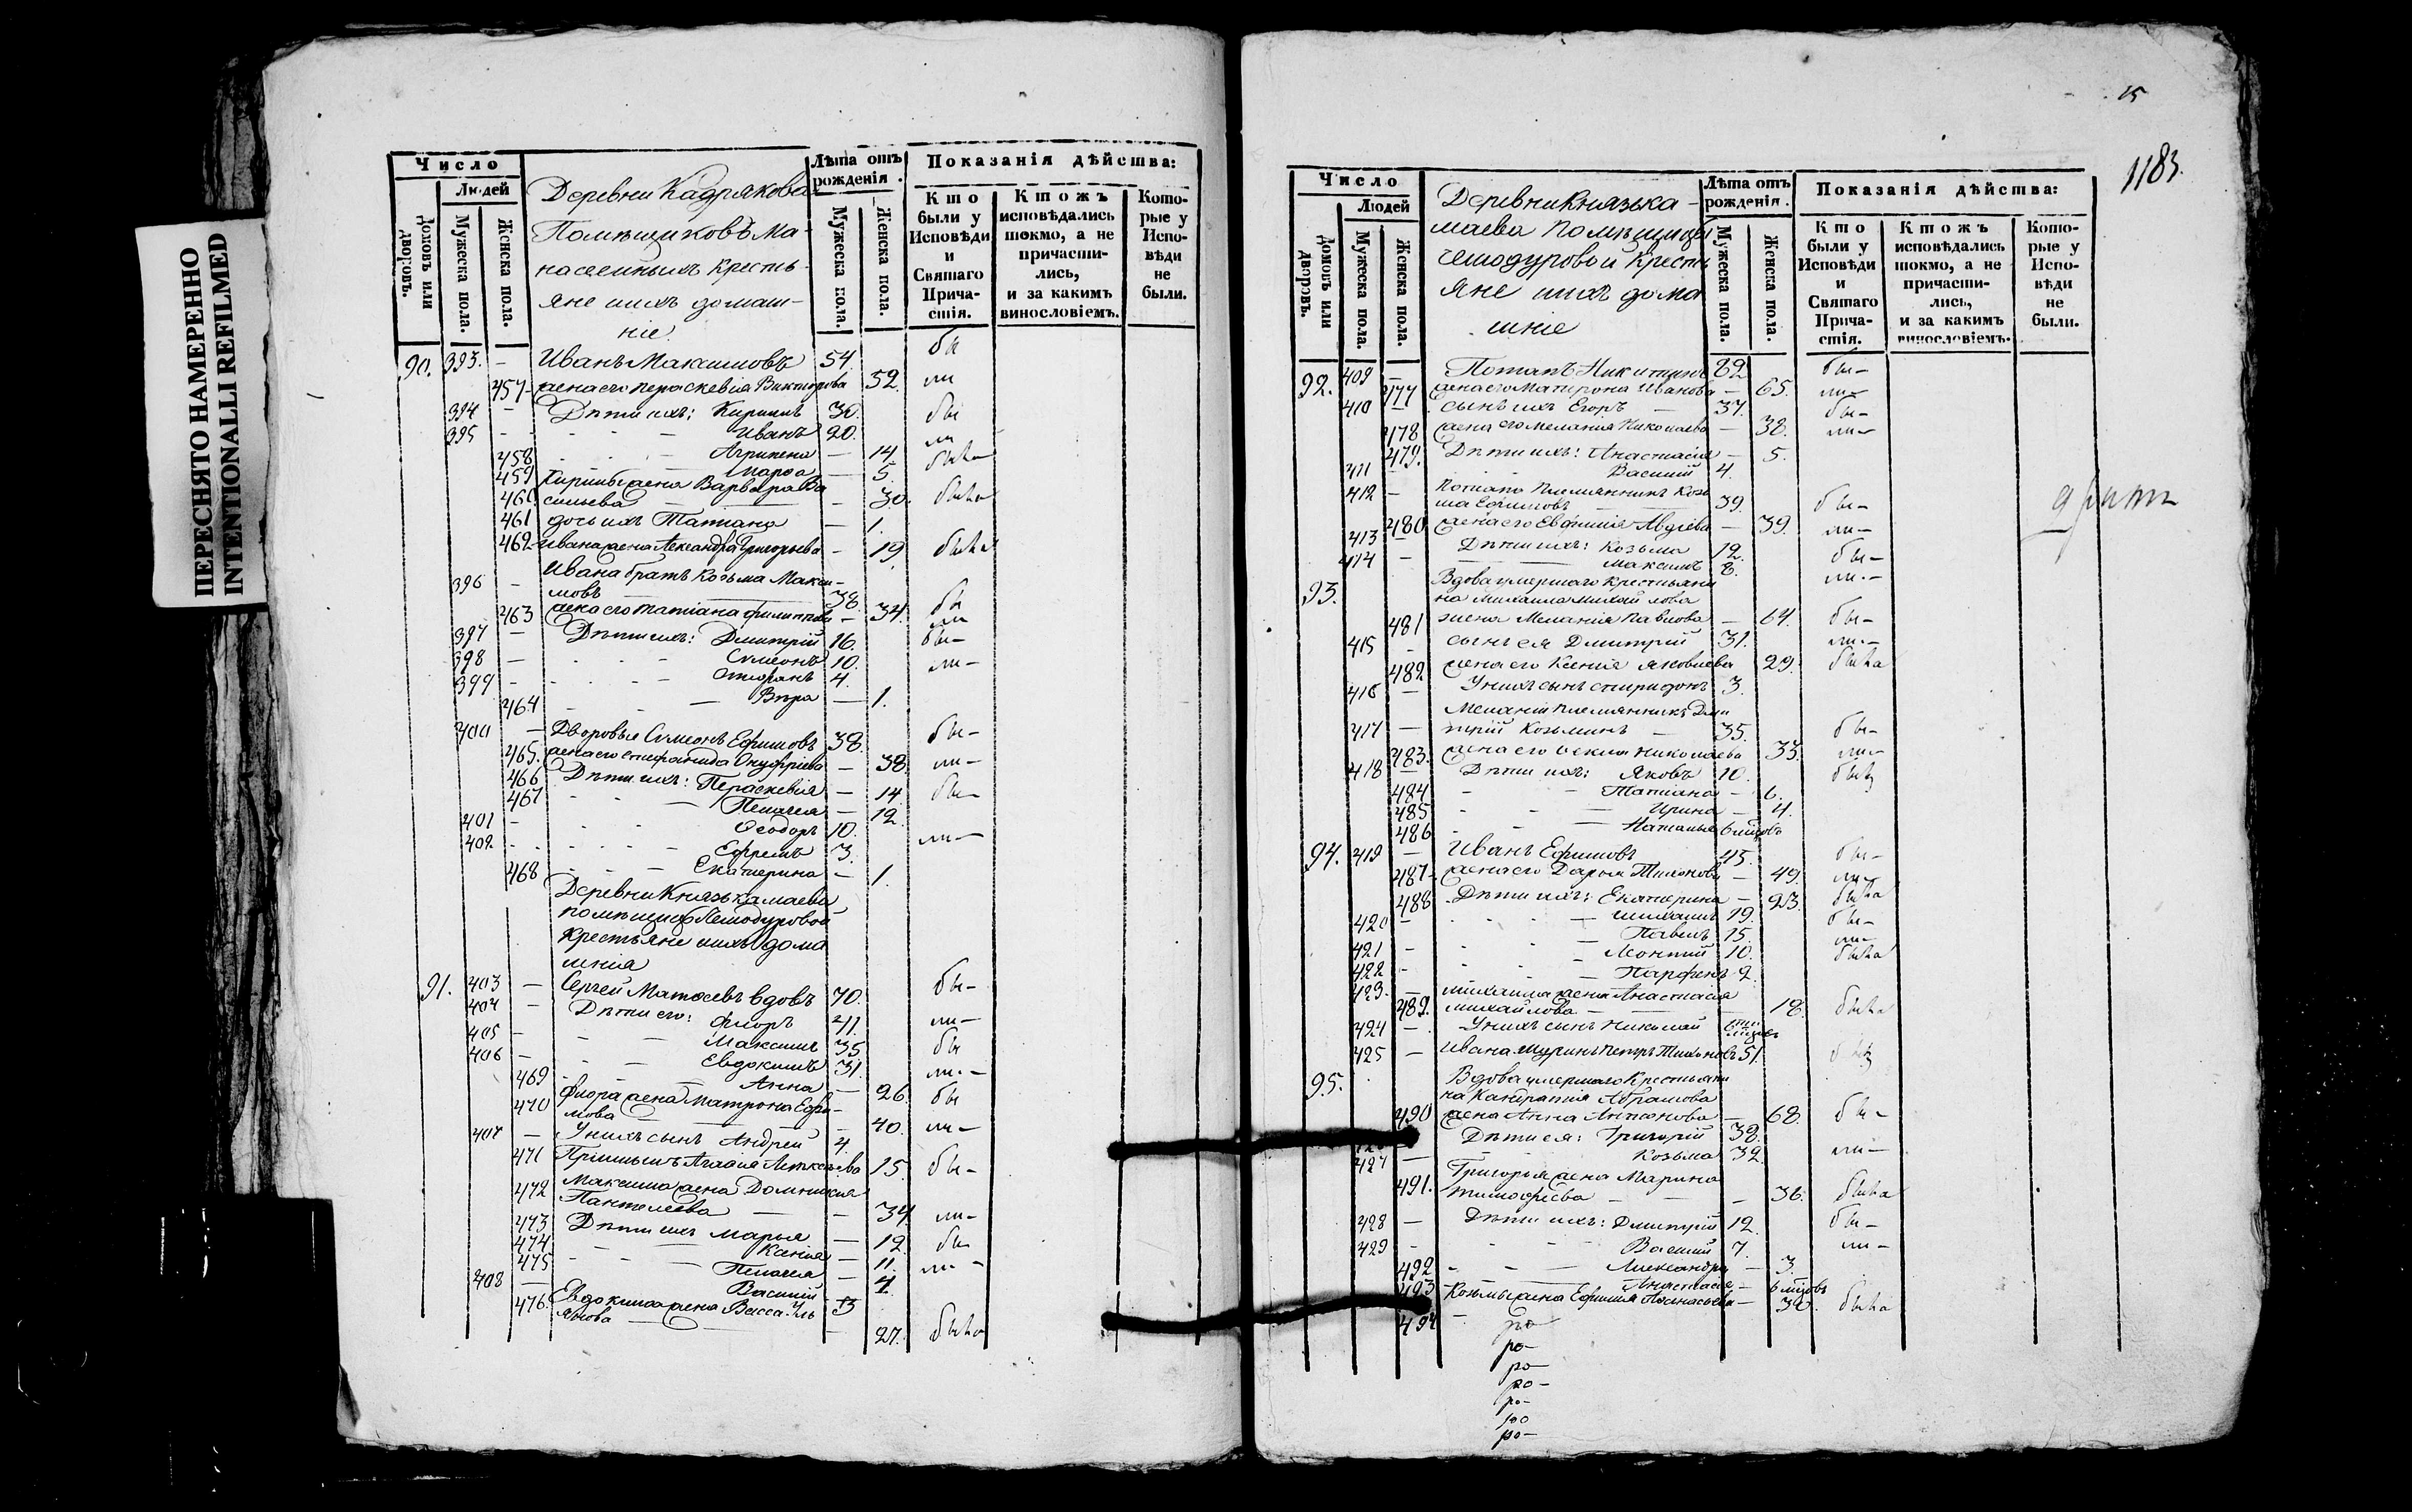 ПЕРЕСНЯТО НАМЕРЕННО
INTENTIONALLI REFILMED
Число
Людей
Домовъ или дворовъ.
Мужеска пола.
Женска пола.
Деревни Кадрякова
Помѣщиковъ Ма-
насеиныхъ Кресть-
яне ихъ домаш-
ніе
Лѣта отъ рожденія.
Мужеска пола.
Женска пола.
Показанія дѣйства:
Кто были у Исповѣди и Святаго Причастія.
Ктожъ исповѣдались токмо, а не причастились, и за какимъ винословіемъ.
Которые у Исповѣди не были.
90. 393. — Иванъ Максимовъ 54. бы
457 жена его Пераскевія Викторова 52. ли
394 — Дѣти ихъ: Кирилъ 30. бы
395 - - - — Иванъ 20. ли
458 Агрипена — 14. была
459 Марѳа — 5.
Кирилы жена Варвара Ва
460 сильева — 30. была
461 дочь ихъ Татіана — 1.
462 Ивана жена Александра Григорьева — 19. была
Ивана братъ Козьма Макси-
396 — мовъ 38. бы
463 жена его Татіана Филипова — 34. ли
397 — Дѣти ихъ: Дмитрій 16. бы-
398 — Симеонъ 10. ли-
399 - Стефанъ 4.
464 — Вѣра — 1.
400 — Дворовые Симеонъ Ефимовъ 38. бы-
465. жена его Стефанида Онуфріева — 38. ли-
466 Дѣти ихъ: Пераскевія — 14 бы-
467 - - — Пелагея — 12.
401 - Ѳеодоръ 10. ли-
402 - Ефремъ 3.
468 - - — Екатерина — 1.
Деревни Князькамаева
помѣщицы Чемодуровой
Крестьяне ихъ дома
шнія
91. 403 — Сергей Матѳеевъ вдовъ 70. бы-
404 — Дѣти его: Флоръ 41. ли-
405 — Максимъ 35. бы
406 — Евдокимъ 31. ли-
469 Анна — 26. бы
Флора жена Матрона Ефи-
470 мова — 40. ли-
407 — У нихъ сынъ Андрей 4.
471 Пріимышъ Агафія Алексѣева 15. бы-
Максима жена Домникія
472 Пантелеева — 34 ли-
473 Дѣти ихъ Марья — 12 бы
474 Ксенія — 11. ли-
475 Пелагея — 4.
408 — Василій
Евдокима жена Васса Иль
476. янова — 27. была
15
1183.
Число
Людей
Домовъ или дворовъ.
Мужеска пола.
Женска пола.
Деревни Князька-
маева Помѣщицы
Чемодуровой Кресть
яне ихъ дома
шніе
Лѣта отъ рожденія.
Мужеска пола.
Женска пола.
Показанія дѣйства:
Кто были у Исповѣди и Святаго Причастія.
Ктожъ исповѣдались токмо, а не причастились, и за какимъ винословіемъ.
Которые у Исповѣди не были.
92. 409 — Потапъ Никитинъ 82 бы-
477 жена его Матрона Иванова — 65. ли-
410 — сынъ ихъ Егоръ — 37. бы-
478 жена его Меланія Николаева — 38. ли-
479. Дѣти ихъ: Анастасія — 5.
411 Василій 4.
Потапа Племянникъ Козь
412 — ма Ефимовъ 39. бы-
480 жена его Евфимія Авдіева — 39. ли-
413 Дѣти ихъ: Козьма 12. бы-
414 — Максимъ 8. ли-
93. Вдова умершаго крестьяни
на Михаила Михайлова
481 жена Меланія Павлова — 64. бы-
415 - сынъ ея Дмитрій 31. ли-
482 жена его Ксенія Яковлева 29. была
416 — У нихъ сынъ Спиридонъ 3.
Меланіи племянникъ Дми
417 — трій Козьминъ — 35. бы-
483. жена его Ѳекла Николаева 33. ли-
418 — Дѣти ихъ: Яковъ 10.
484 - — Татіана — 6.
485 - — Ирина — 4.
486 - — Наталья 6 мцовъ
94. 419 — Иванъ Ефимовъ 45. бы-
487 жена его Дарья Тихонова — 49. ли-
488 Дѣти ихъ: Екатерина — 23. была
420 — Михаилъ 19. бы-
421 - Павелъ 15. ли-
422 - Леонтій 10. была
423. — Парфенъ 2.
Михаила жена Анастасія
489. Михайлова — 18. была
424 — У нихъ сынъ Николай
425 — Ивана Шуринъ Петръ Тихоновъ 51.
95. Вдова умершаго Крестьяни
на Кандратія Абрамова
490 жена Анна Антонова — 68. бы-
Дѣти ея: Григорій 38.
427 — Козьма 32. ли-
Григорья жена Марина
491. Тимофѣева — 36. была
428 — Дѣти ихъ: Дмитрій 12. бы-
429 - Василій 7. ли-
492 - - — Александра — 3.
493 Анастасія — 6 мцовъ
494 Козьмы жена Ефимія Аѳанасьева — 30. была
ро
ро-
ро-
ро-
ро-
ро
ро-